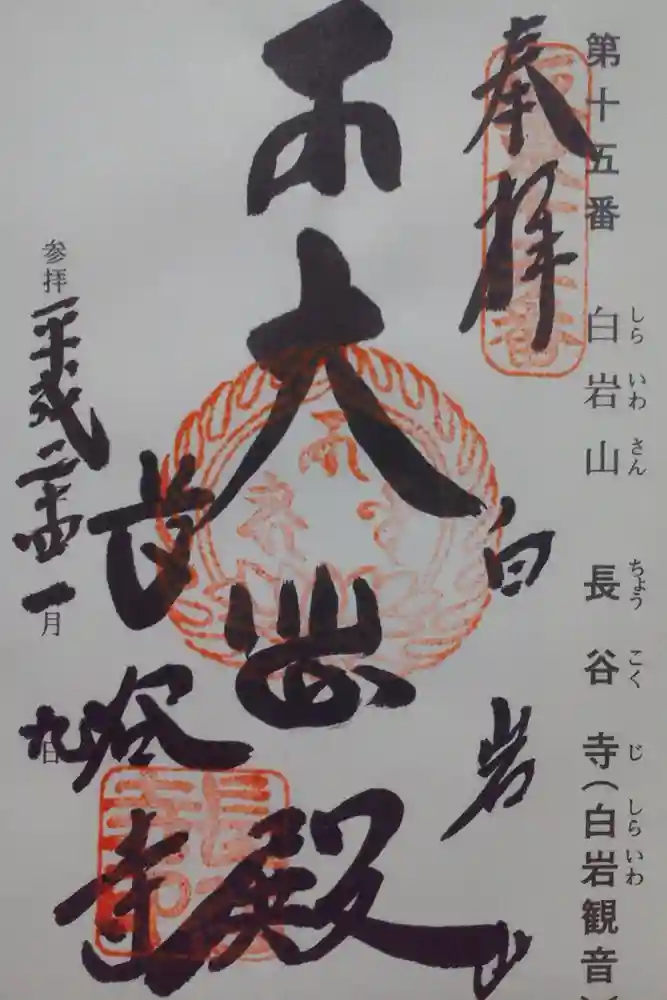 第十五番 白岩山 長谷寺(白岩観音
しら いわ さん ちょう こく じ しら いわ
奉拝
白岩山
大悲殿
長谷寺
参拝 平成二十四年一月九日